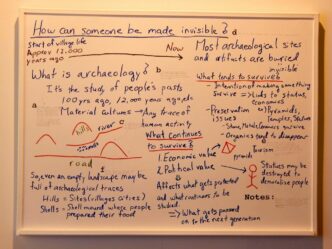 How can someone be made invisible?
d
Start of village life
Approx 12,000
years ago
Now
What is archaeology?
b
It's the study of people's pasts
100 yrs ago, 12,000 years ago, etc
Material Cultures → Any trace of
human activity
a
river
c
mounds
road
f
So, even an empty landscape may be
full of archaeological traces
Hills = Sites (villages, cities)
Shells = Shell mound where people
prepared their food
What continues
to survive?
1. Economic value
tourism
prouds
2. Political value
e
Statues may be
destroyed to
demoralise people
B
Affects what gets protected
and what continues to be
studied
=> What gets passed
on to the next generation
Most archaeological sites
and artifacts are buried
invisible
What tends to survive?
- Intention of making something
survive → Used to student,
economies
- Preservation → Pyramids,
issues
Temples, Statues
- Stone, Metals, Ceramics survive
- Organics tend to disappear
Notes: